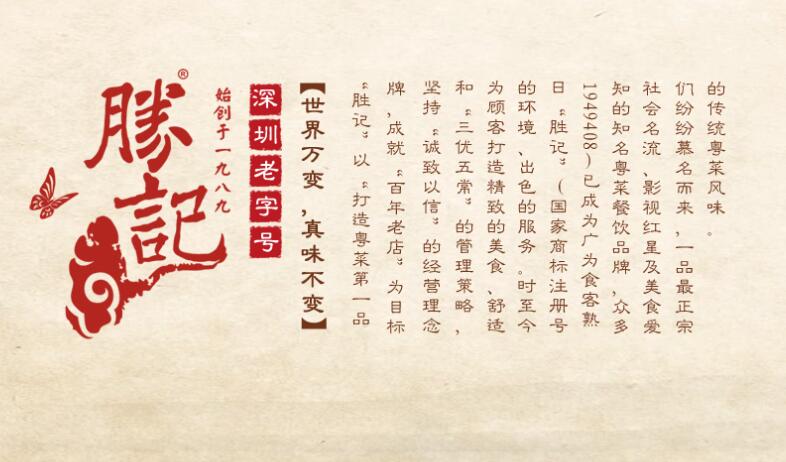 勝記®
始创于一九八九
深圳老字号
【世界万变,真味不变】
“胜记”以“打造粤菜第一品
牌,成就“百年老店”为目标
坚持“诚致以信”的经营理念
和“三优五常”的管理策略,
为顾客打造精致的美食、舒适
的环境、出色的服务。时至今
日“胜记”(国家商标注册号
1949408)已成为广为食客熟
知的知名粤菜餐饮品牌,众多
社会名流、影视红星及美食爱
们纷纷慕名而来,一品最正宗
的传统粤菜风味。